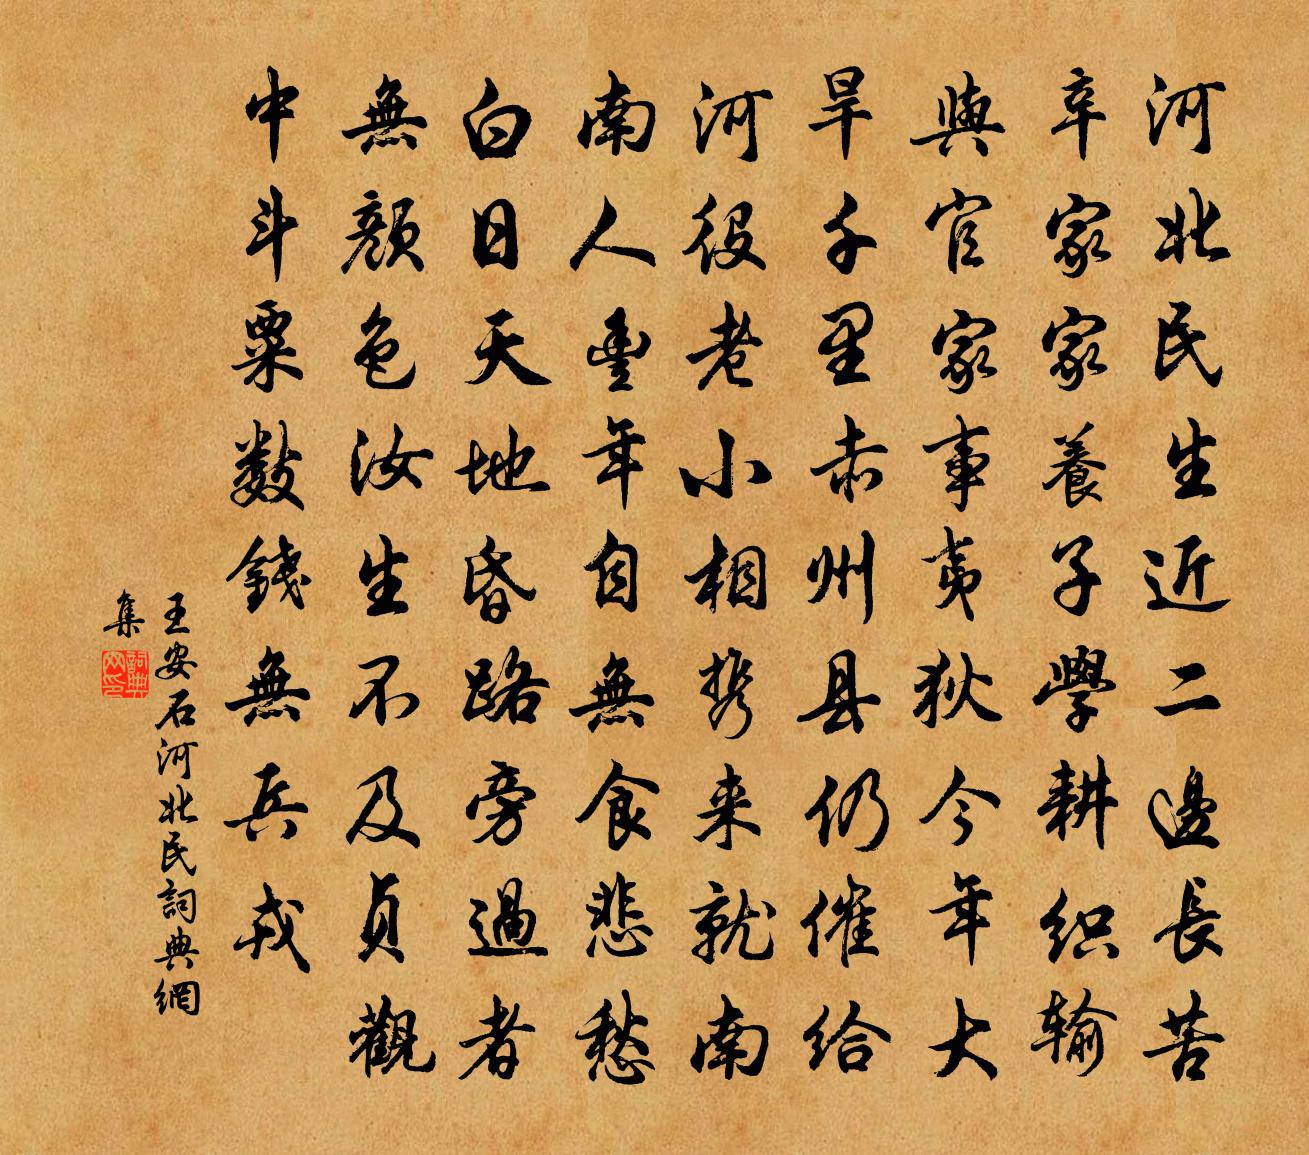 河北民生近二邊長苦
辛家家養子學耕织输
與官家事夷狄今年大
旱千里赤州县仍催给
河役老小相携来就南
南人豊年自無食悲愁
白日天地昏路旁過者
無顔色汝生不及貞觀
中斗粟数錢無兵戎
王安石河北民詞典網
集
詞典
网印